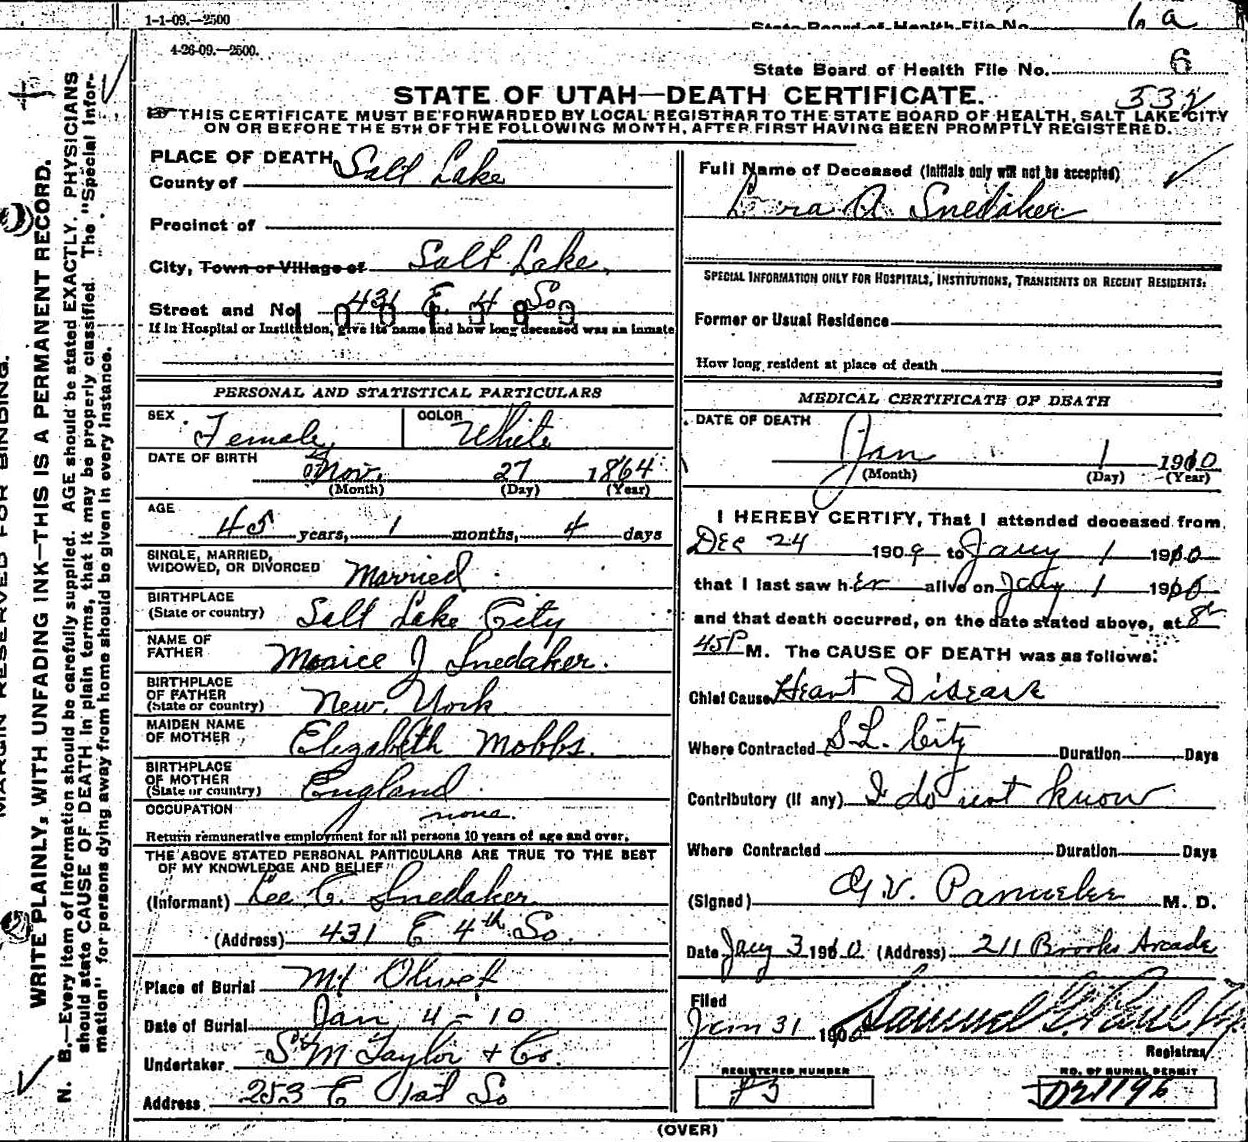 1-1-09.—2500
State Board of Health File No. 6 a
4-26-09.—2500.
State Board of Health File No. 6
532
STATE OF UTAH—DEATH CERTIFICATE.
THIS CERTIFICATE MUST BE FORWARDED BY LOCAL REGISTRAR TO THE STATE BOARD OF HEALTH, SALT LAKE CITY
ON OR BEFORE THE 5TH OF THE FOLLOWING MONTH, AFTER FIRST HAVING BEEN PROMPTLY REGISTERED.
MARGIN RESERVED FOR BINDING.
WRITE PLAINLY, WITH UNFADING INK—THIS IS A PERMANENT RECORD.
N. B.—Every item of information should be carefully supplied. AGE should be stated EXACTLY. PHYSICIANS
should state CAUSE OF DEATH in plain terms, that it may be properly classified. The "Special Infor-
mation" for persons dying away from home should be given in every instance.
PLACE OF DEATH
County of Salt Lake
Precinct of
City, Town or Village of Salt Lake
Street and No. 431 E. 4 So
If in Hospital or Institution, give its name and how long deceased was an inmate
PERSONAL AND STATISTICAL PARTICULARS
SEX Female COLOR White
DATE OF BIRTH Nov. 27 1864
(Month) (Day) (Year)
AGE
45 years, 1 months, 4 days
SINGLE, MARRIED,
WIDOWED, OR DIVORCED Married
BIRTHPLACE
(State or country) Salt Lake City
NAME OF
FATHER J Snedaker.
BIRTHPLACE
OF FATHER
(State or country) New York
MAIDEN NAME
OF MOTHER Elizabeth Mobbs.
BIRTHPLACE
OF MOTHER
(State or country) England
OCCUPATION none.
Return remunerative employment for all persons 10 years of age and over.
THE ABOVE STATED PERSONAL PARTICULARS ARE TRUE TO THE BEST
OF MY KNOWLEDGE AND BELIEF
(Informant) Lee C. Snedaker
(Address) 431 E 4th So.
Place of Burial Mt Olivet
Date of Burial Jan 4-10
Undertaker S M Taylor & Co
Address 253 E 1st So
Full Name of Deceased (Initials only will not be accepted)
A Snedaker
SPECIAL INFORMATION ONLY FOR HOSPITALS, INSTITUTIONS, TRANSIENTS OR RECENT RESIDENTS:
Former or Usual Residence
How long resident at place of death
MEDICAL CERTIFICATE OF DEATH
DATE OF DEATH
Jan 1 1910
(Month) (Day) (Year)
I HEREBY CERTIFY, That I attended deceased from
Dec 24 1909 to Jany 1 1910
that I last saw her alive on Jany 1 1910
and that death occurred, on the date stated above, at 8
45 P M. The CAUSE OF DEATH was as follows:
Chief Cause Heart Disease
Where Contracted S L. City Duration Days
Contributory (if any) I do not know
Where Contracted Duration Days
(Signed) M. D.
Date Jany 3 1910 (Address) 211 Brooks Arcade
Filed
Jan 31 1910 Samuel G. Paul
Registrar
REGISTERED NUMBER NO. OF BURIAL PERMIT
P3 D21196
(OVER)